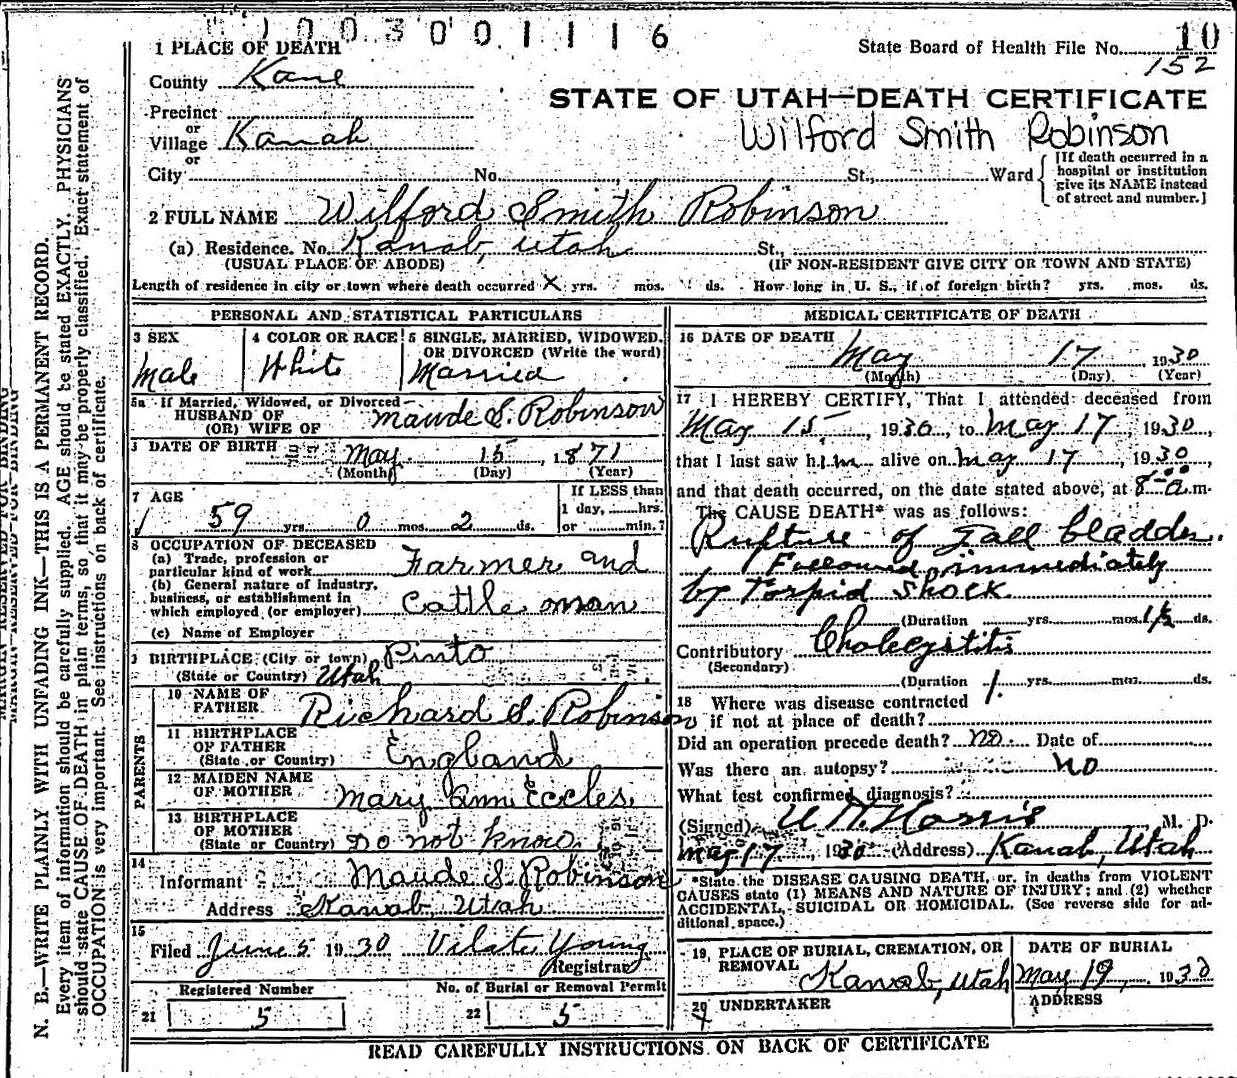 1003001116
1 PLACE OF DEATH
State Board of Health File No. 10
152
County Kane
STATE OF UTAH—DEATH CERTIFICATE
Wilford Smith Robinson
Precinct
or
Village Kanab
or
City No. St., Ward
[If death occurred in a hospital or institution give its NAME instead of street and number.]
2 FULL NAME Wilford Smith Robinson
(a) Residence. No. Kanab, Utah St.,
(USUAL PLACE OF ABODE) (IF NON-RESIDENT GIVE CITY OR TOWN AND STATE)
Length of residence in city or town where death occurred X yrs. mos. ds. How long in U. S., if of foreign birth? yrs. mos. ds.
PERSONAL AND STATISTICAL PARTICULARS
3 SEX
Male
4 COLOR OR RACE
White
5 SINGLE, MARRIED, WIDOWED, OR DIVORCED (Write the word)
Married
5a If Married, Widowed, or Divorced—
HUSBAND OF
(OR) WIFE OF Maude S. Robinson
DATE OF BIRTH May 15 1871
(Month) (Day) (Year)
7 AGE
59 yrs. 0 mos. 2 ds.
If LESS than
1 day, hrs.
or min.?
8 OCCUPATION OF DECEASED
(a) Trade, profession or
particular kind of work Farmer and
(b) General nature of industry,
business, or establishment in
which employed (or employer) Cattle man
(c) Name of Employer
9 BIRTHPLACE (City or town) Pinto
(State or Country) Utah
PARENTS
10 NAME OF
FATHER Richard S. Robinson
11 BIRTHPLACE
OF FATHER
(State or Country) England
12 MAIDEN NAME
OF MOTHER Mary Ann Eccles
13 BIRTHPLACE
OF MOTHER
(State or Country) Do not know
14
Informant Maude S. Robinson
Address Kanab, Utah
15
Filed June 5 1930 Vilate Young
Registrar
Registered Number No. of Burial or Removal Permit
21 5 22 5
MEDICAL CERTIFICATE OF DEATH
16 DATE OF DEATH
May 17 1930
(Month) (Day) (Year)
17 I HEREBY CERTIFY, That I attended deceased from
May 15, 1930, to May 17, 1930,
that I last saw him alive on May 17, 1930,
and that death occurred, on the date stated above, at 8 a.m.
The CAUSE DEATH* was as follows:
Rupture of Gall bladder.
Followed immediately
by Torpid Shock
(Duration yrs. mos. 1½ ds.
Contributory Cholecystitis
(Secondary)
(Duration 1 yrs. mos. ds.
18 Where was disease contracted
if not at place of death?
Did an operation precede death? no. Date of
Was there an autopsy? no
What test confirmed diagnosis?
(Signed) Norris M. D.
May 17, 1930 (Address) Kanab, Utah
*State the DISEASE CAUSING DEATH, or, in deaths from VIOLENT
CAUSES state (1) MEANS AND NATURE OF INJURY; and (2) whether
ACCIDENTAL, SUICIDAL OR HOMICIDAL. (See reverse side for ad-
ditional space.)
19 PLACE OF BURIAL, CREMATION, OR
REMOVAL
Kanab, Utah
DATE OF BURIAL
May 19, 1930
20 UNDERTAKER
ADDRESS
READ CAREFULLY INSTRUCTIONS ON BACK OF CERTIFICATE
N. B.—WRITE PLAINLY WITH UNFADING INK—THIS IS A PERMANENT RECORD.
Every item of information should be carefully supplied. AGE should be stated EXACTLY. PHYSICIANS
should state CAUSE OF DEATH in plain terms, so that it may be properly classified. Exact statement of
OCCUPATION is very important. See instructions on back of certificate.